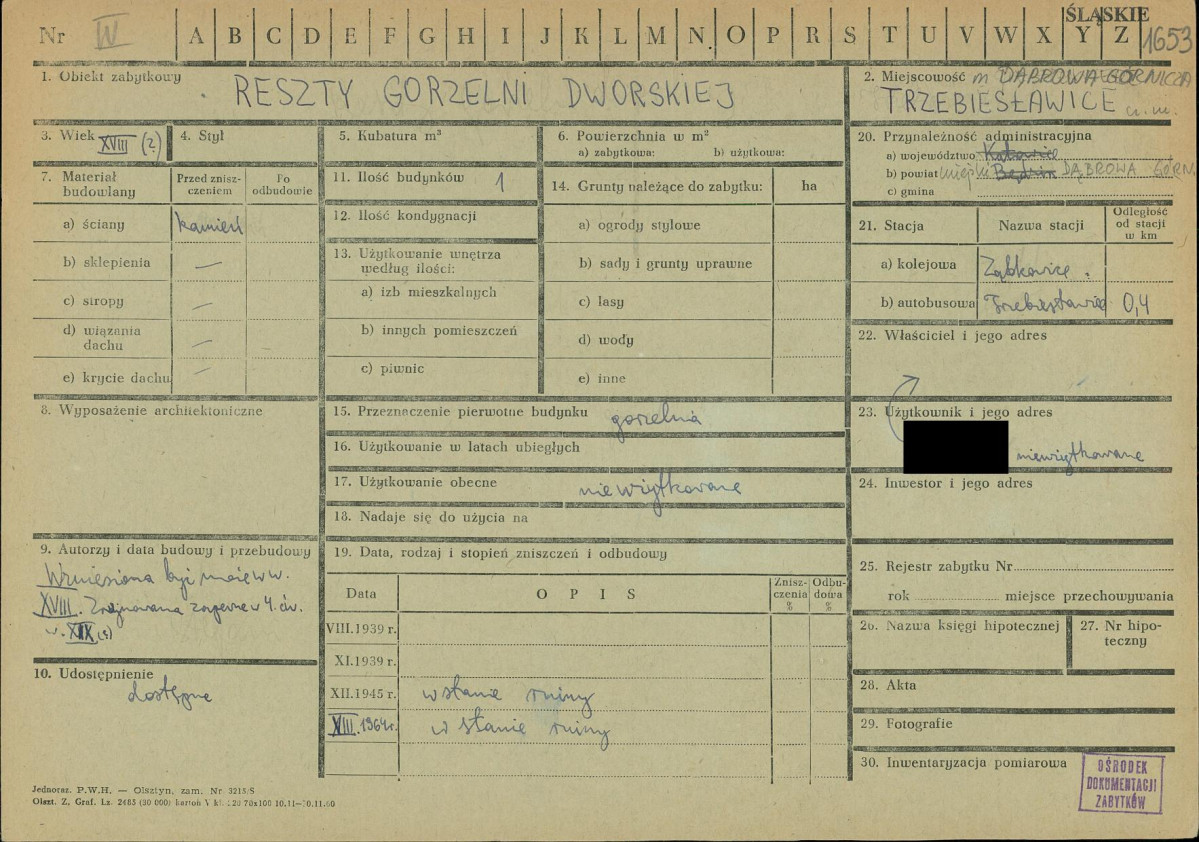 ŚLĄSKIE
Nr IV A B C D E F G H I J K L M N O P R S T U V W X Y Z 1653
1. Obiekt zabytkowy
RESZTY GORZELNI DWORSKIEJ
2. Miejscowość m DĄBROWA GÓRNICZA
TRZEBIESŁAWICE
3. Wiek XVIII (?)
4. Styl
5. Kubatura m³
6. Powierzchnia w m²
a) zabytkowa: b) użytkowa:
20. Przynależność administracyjna
a) województwo Katowice
b) powiat miejski Będzin DĄBROWA GÓRN.
c) gmina
7. Materiał budowlany
Przed znisz-
czeniem
Po
odbudowie
a) ściany kamień
b) sklepienia —
c) stropy —
d) wiązania
dachu —
e) krycie dachu —
11. Ilość budynków 1
12. Ilość kondygnacji
13. Użytkowanie wnętrza
według ilości:
a) izb mieszkalnych
b) innych pomieszczeń
c) piwnic
14. Grunty należące do zabytku: ha
a) ogrody stylowe
b) sady i grunty uprawne
c) lasy
d) wody
e) inne
21. Stacja Nazwa stacji
Odległość
od stacji
w km
a) kolejowa Ząbkowice
b) autobusowa Trzebiesławice 0,4
22. Właściciel i jego adres
8. Wyposażenie architektoniczne
15. Przeznaczenie pierwotne budynku gorzelnia
16. Użytkowanie w latach ubiegłych
17. Użytkowanie obecne nieużytkowane
18. Nadaje się do użycia na
23. Użytkownik i jego adres
nieużytkowane
24. Inwestor i jego adres
9. Autorzy i data budowy i przebudowy
Wzniesiona być może w w.
XVIII. Zrujnowana zapewne w 4. ćw.
w. XIX (?)
10. Udostępnienie
dostępne
19. Data, rodzaj i stopień zniszczeń i odbudowy
Data OPIS
Znisz-
czenia
%
Odbu-
dowa
%
VIII.1939 r.
XI.1939 r.
XII.1945 r. w stanie ruiny
XIII.1964r. w stanie ruiny
25. Rejestr zabytku Nr
rok miejsce przechowywania
26. Nazwa księgi hipotecznej
27. Nr hipo-
teczny
28. Akta
29. Fotografie
30. Inwentaryzacja pomiarowa
OŚRODEK
DOKUMENTACJI
ZABYTKÓW
Jednoraz. P.W.H. — Olsztyn, zam. Nr 3215/S
Olszt. Z. Graf. Ls. 2483 (20 000) kartoń V kl. 120 76x100 10.11—10.11.60